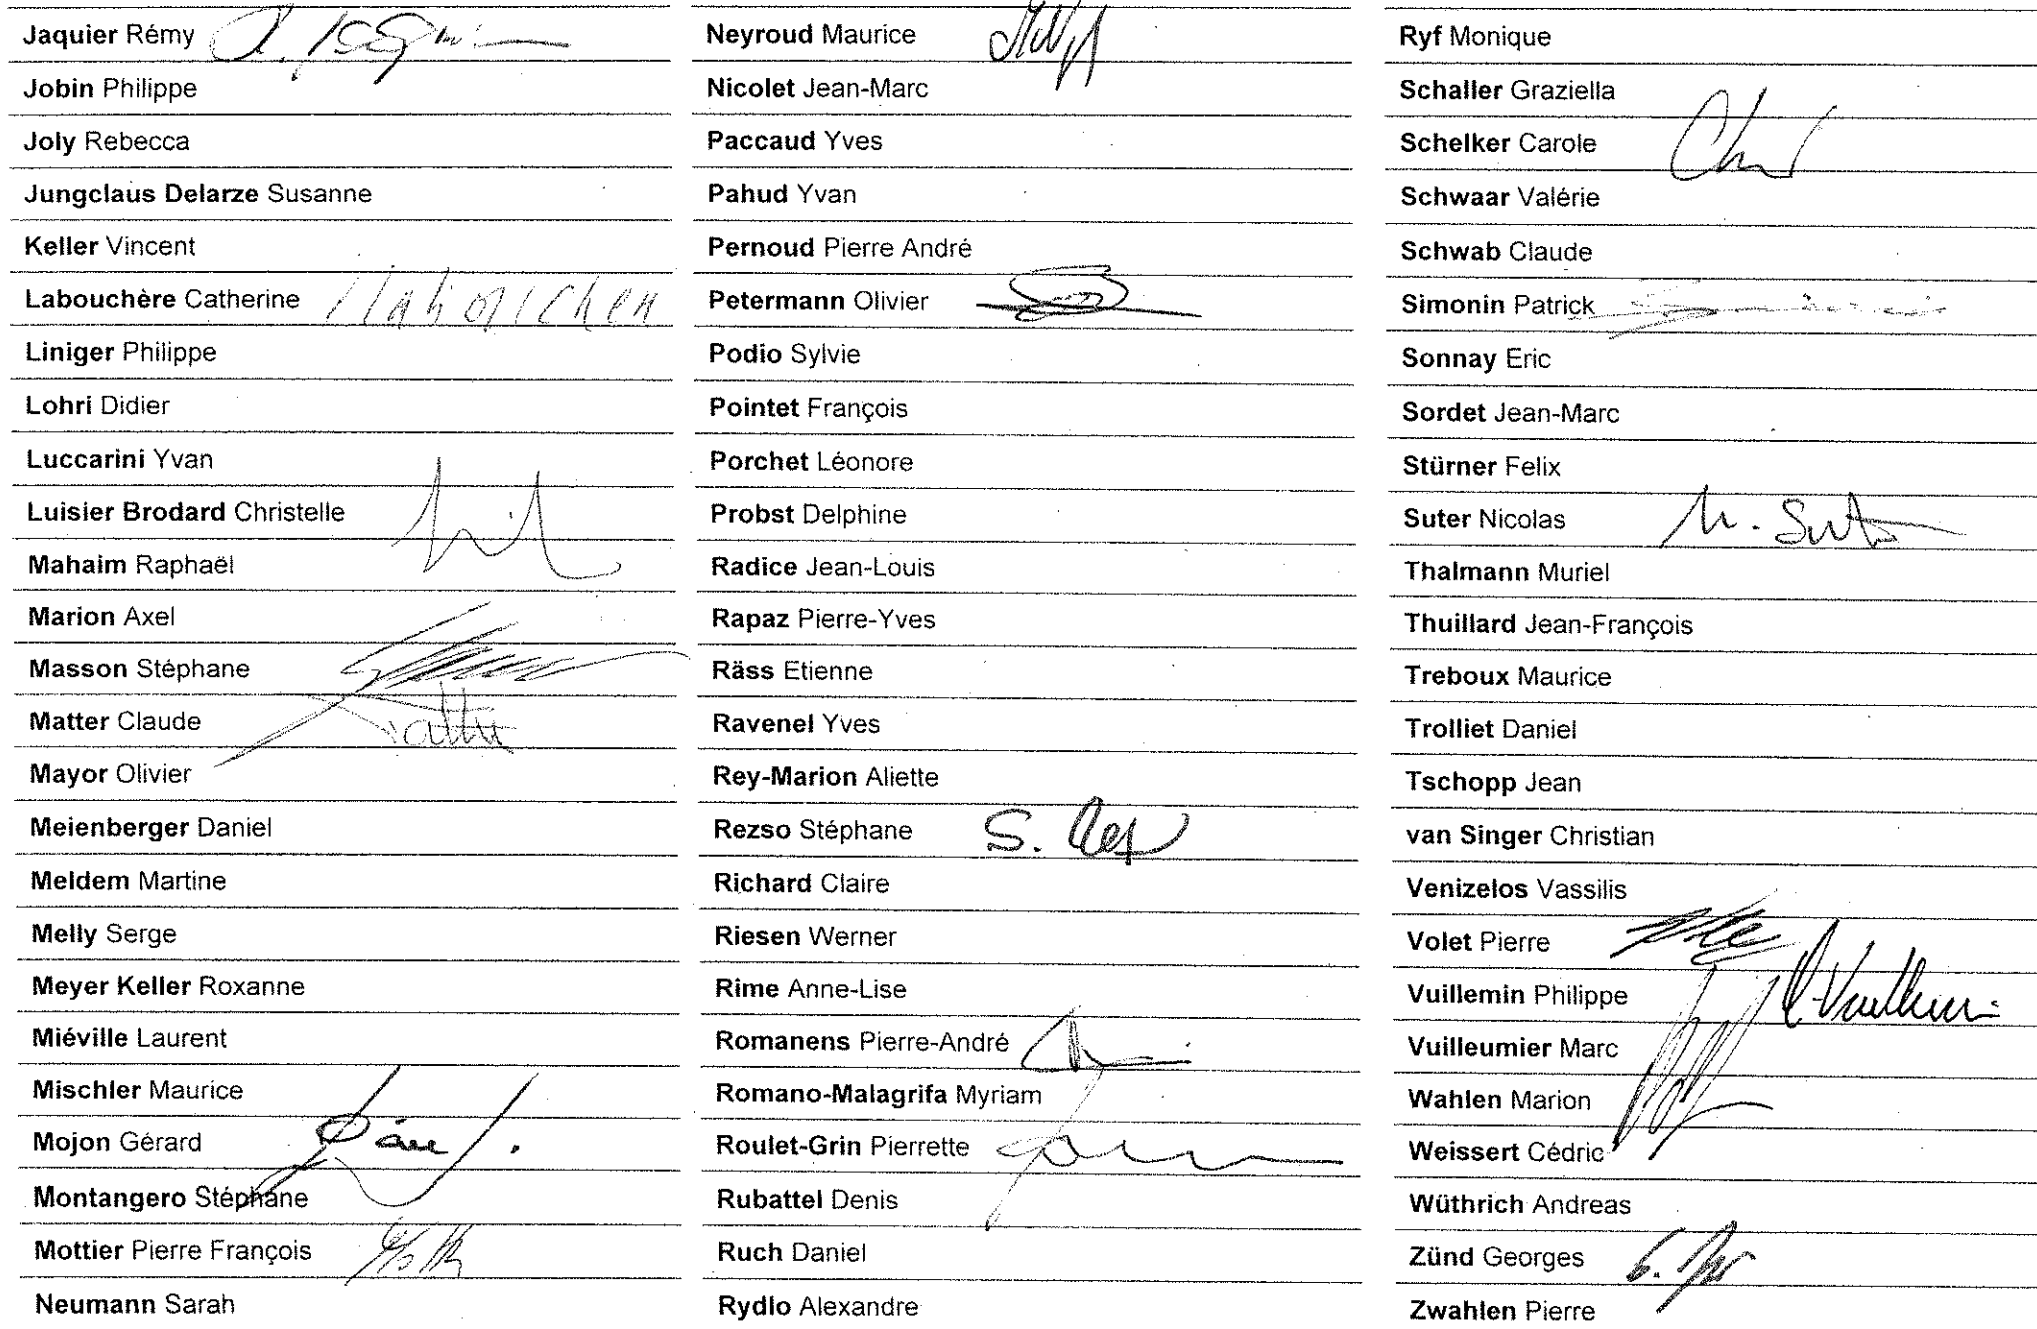 Jaquier Rémy
Jobin Philippe
Joly Rebecca
Jungclaus Delarze Susanne
Keller Vincent
Labouchère Catherine
Liniger Philippe
Lohri Didier
Luccarini Yvan
Luisier Brodard Christelle
Mahaim Raphaël
Marion Axel
Masson Stéphane
Matter Claude
Mayor Olivier
Meienberger Daniel
Meldem Martine
Melly Serge
Meyer Keller Roxanne
Miéville Laurent
Mischler Maurice
Mojon Gérard
Montangero Stéphane
Mottier Pierre François
Neumann Sarah
Neyroud Maurice
Nicolet Jean-Marc
Paccaud Yves
Pahud Yvan
Pernoud Pierre André
Petermann Olivier
Podio Sylvie
Pointet François
Porchet Léonore
Probst Delphine
Radice Jean-Louis
Rapaz Pierre-Yves
Räss Etienne
Ravenel Yves
Rey-Marion Aliette
Rezso Stéphane S.
Richard Claire
Riesen Werner
Rime Anne-Lise
Romanens Pierre-André
Romano-Malagrifa Myriam
Roulet-Grin Pierrette
Rubattel Denis
Ruch Daniel
Rydlo Alexandre
Ryf Monique
Schaller Graziella
Schelker Carole
Schwaar Valérie
Schwab Claude
Simonin Patrick
Sonnay Eric
Sordet Jean-Marc
Stürner Felix
Suter Nicolas N. Suter
Thalmann Muriel
Thuillard Jean-François
Treboux Maurice
Trolliet Daniel
Tschopp Jean
van Singer Christian
Venizelos Vassilis
Volet Pierre
Vuillemin Philippe
Vuilleumier Marc
Wahlen Marion
Weissert Cédric
Wüthrich Andreas
Zünd Georges
Zwahlen Pierre